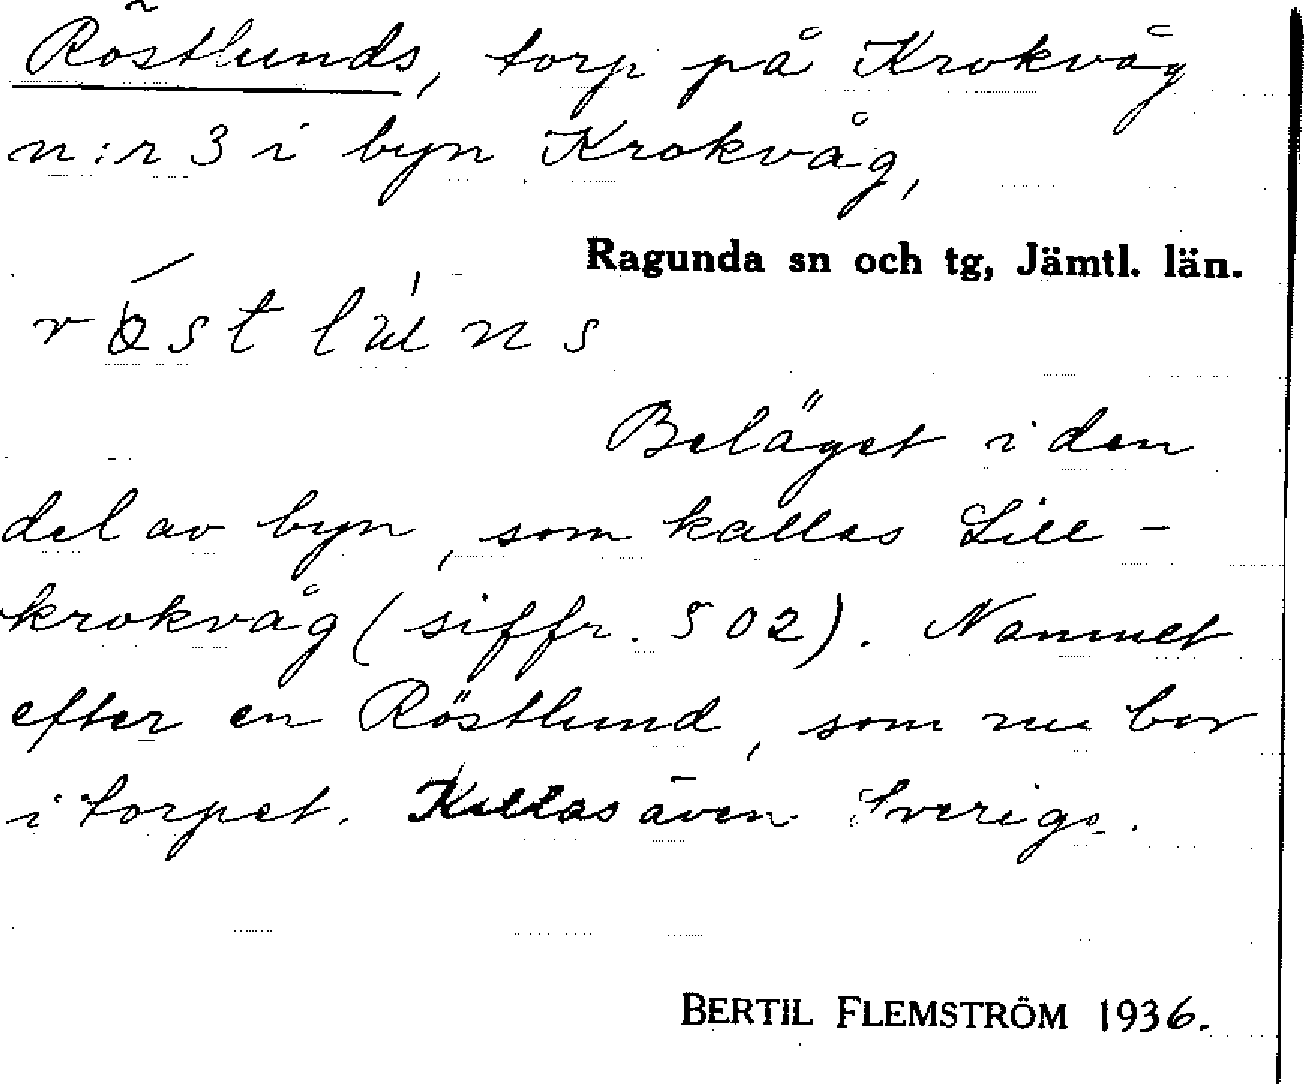 Röstlunds, torp på Krokvåg
n:r 3 i byn Krokvåg,
Ragunda sn och tg, Jämtl. län.
Beläget i den
del av byn, som kallas Lill-
krokvåg (siffr. 502). Namnet
efter en Röstlund, som nu bor
i torpet. Kallas även Sverigs.
BERTIL FLEMSTRÖM 1936.